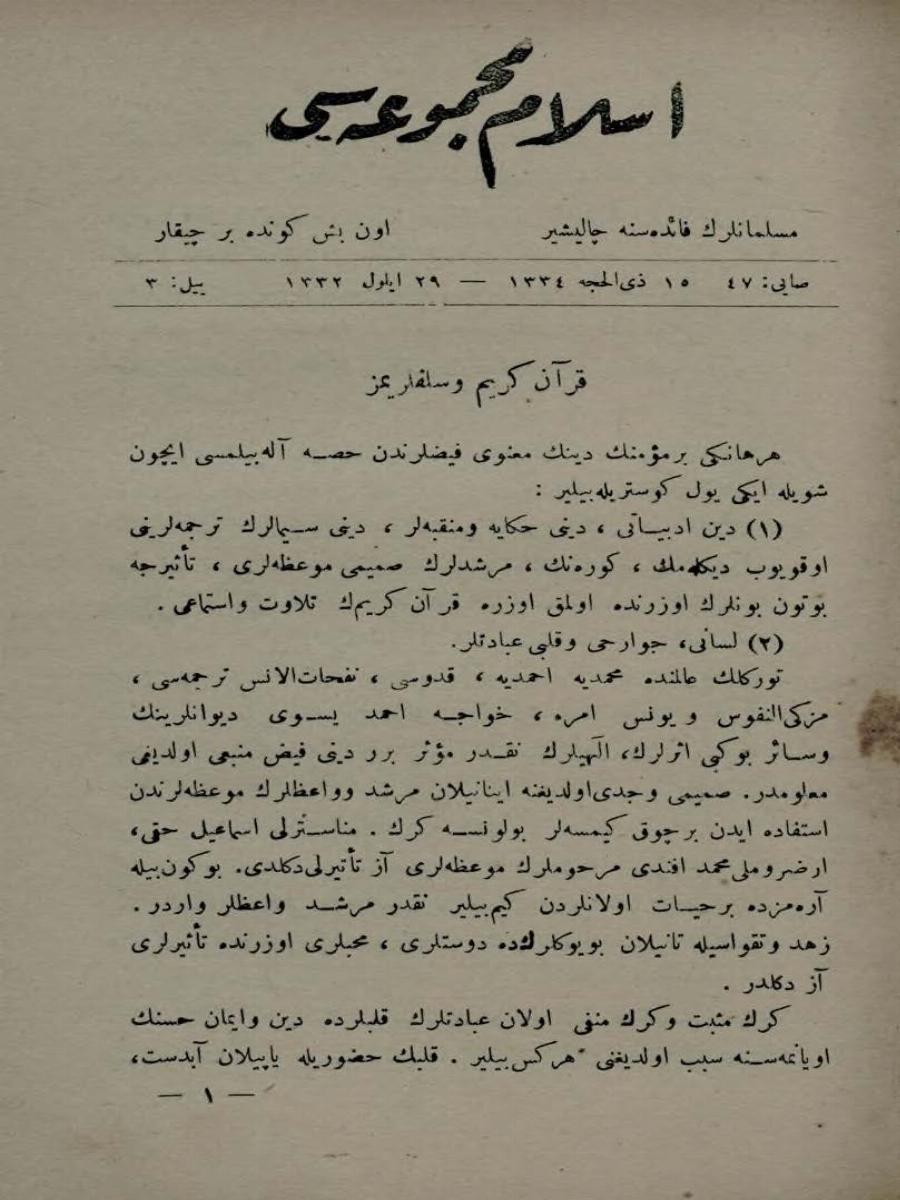 اسلام مجموعه‌سی
مسلمانلرك فائده‌سنه چالیشیر
اون بش كونده بر چیقار
صایی: ٤٧   ١٥ ذی‌الحجه ١٣٣٤ — ٢٩ ایلول ١٣٣٢   ییل: ٣
قرآن كریم وسلفلریمز
هرهانكی برمؤمنك دینك معنوی فیضلرندن حصه آله‌بیلمسی ایچون
شویله ایكی یول كوستریله‌بیلیر :
(١) دین ادبیاتی ، دینی حكایه ومنقبه‌لر ، دینی سیمالرك ترجمه‌لرینی
اوقویوب دیكله‌مك ، كوره‌نك ، مرشدلرك صمیمی موعظه‌لری ، تأثیرجه
بوتون بونلرك اوزرنده اولمق اوزره قرآن كریم‌ك تلاوت واستماعی .
(٢) لسانی، جوارحی وقلبی عبادتلر.
توركلك عالمنده محمدیه احمدیه ، قدوسی ، نفحات‌الانس ترجمه‌سی ،
مزكی‌النفوس و یونس امره ، خواجه احمد یسوی دیوانلرینك
وسائر بوكبی اثرلرك، الٓهیلرك نقدر مؤثر برر دینی فیض منبعی اولدیغی
معلومدر. صمیمی وجدی‌اولدیغنه اینانیلان مرشد وواعظلرك موعظه‌لرندن
استفاده ایدن برچوق كیمسه‌لر بولونسه كرك . مناسترلی اسماعیل حقی،
ارضروملی‌محمد افندی مرحوملرك موعظه‌لری آز تأثیرلی‌دكلدی. بوكون‌بیله
آره‌مزده برحیات اولانلردن كیم‌بیلیر نقدر مرشد واعظلر واردر .
زهد وتقواسیله تانیلان بویوكلرك‌ده دوستلری ، محبلری اوزرنده تأثیرلری
آز دكلدر .
كرك مثبت وكرك منفی اولان عبادتلرك قلبلرده دین وایمان حسنك
اویانمه‌سنه سبب اولدیغنی هركس‌بیلیر . قلبك حضوریله یاپیلان آبدست،
— ١ —